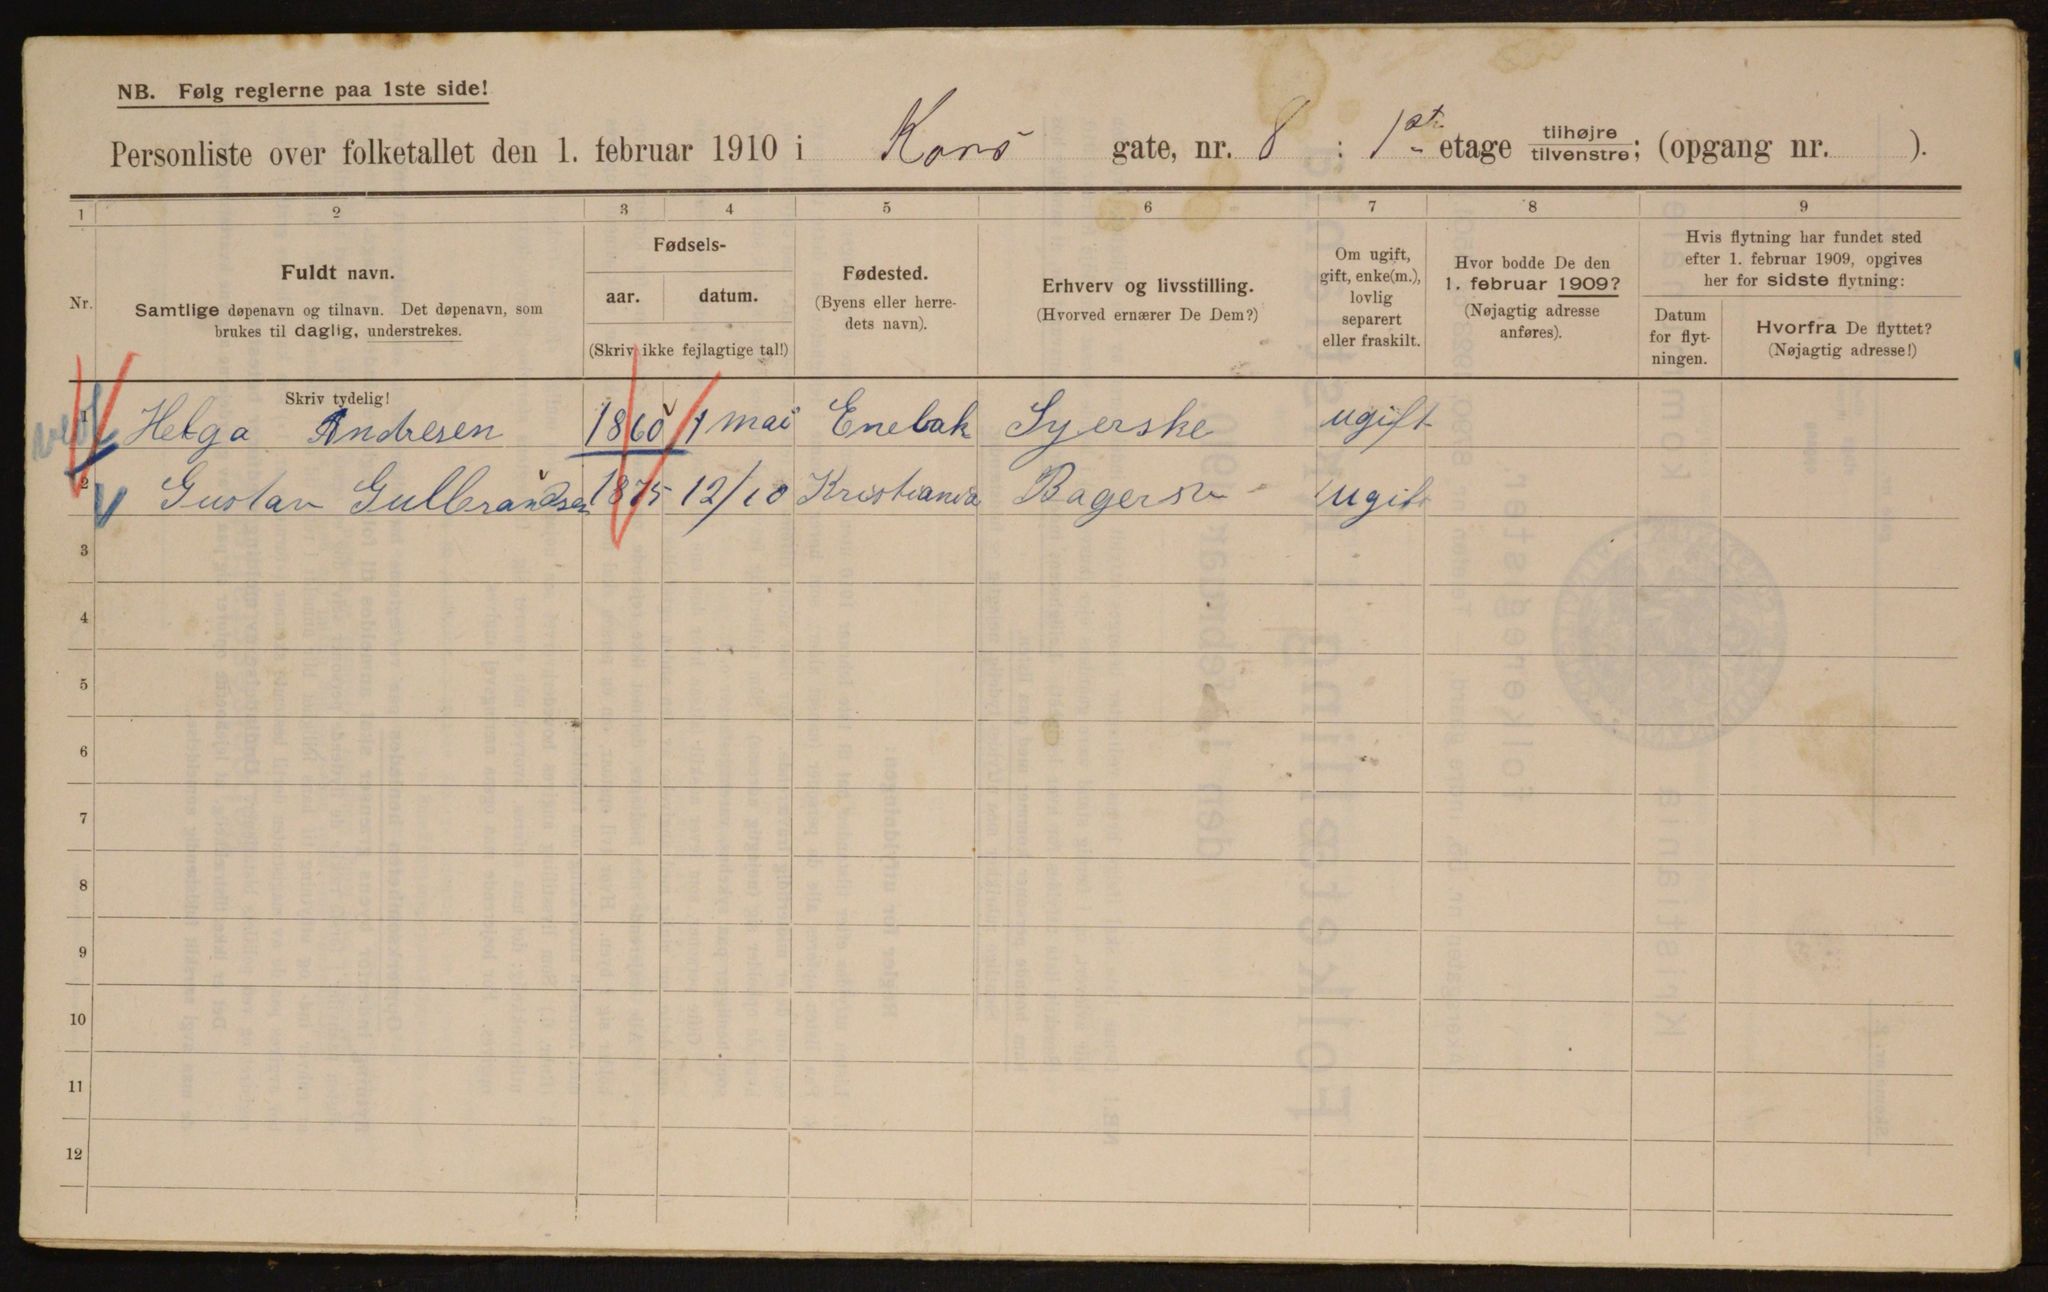 NB. Følg reglerne paa 1ste side!
Personliste over folketallet den 1. februar 1910 i Kors gate, nr. 8 : 1ste etage tilhøjre/tilvenstre; (opgang nr. ).
1 2 3 4 5 6 7 8 9
Nr.
Fuldt navn.
Samtlige døpenavn og tilnavn. Det døpenavn, som
brukes til daglig, understrekes.
Skriv tydelig!
Fødsels-
aar. datum.
(Skriv ikke fejlagtige tal!)
Fødested.
(Byens eller herre-
dets navn).
Erhverv og livsstilling.
(Hvorved ernærer De Dem?)
Om ugift,
gift, enke(m.),
lovlig
separert
eller fraskilt.
Hvor bodde De den
1. februar 1909?
(Nøjagtig adresse
anføres).
Hvis flytning har fundet sted
efter 1. februar 1909, opgives
her for sidste flytning:
Datum
for flyt-
ningen.
Hvorfra De flyttet?
(Nøjagtig adresse!)
1 Helga Andresen 1860 1 mai Enebak Syerske ugift
2 Gustav Gulbrandsen 1875 12/10 Kristiania Bagersv ugift
3
4
5
6
7
8
9
10
11
12